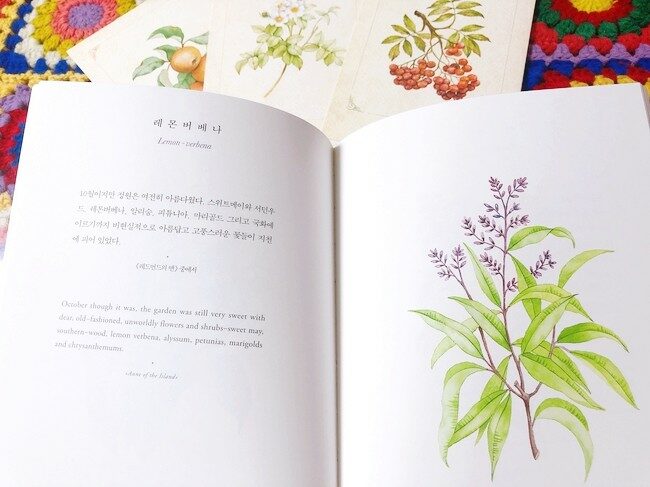 레몬버베나
Lemon-verbena
10월이지만 정원은 여전히 아름다웠다. 스위트메이와 서던우
드, 레몬버베나, 알리숨, 피튜니아, 마리골드 그리고 국화에
이르기까지 비현실적으로 아름답고 고풍스러운 꽃들이 지천
에 피어 있었다.
《레드먼드의 앤》 중에서
October though it was, the garden was still very sweet with
dear, old-fashioned, unworldly flowers and shrubs-sweet may,
southern-wood, lemon verbena, alyssum, petunias, marigolds
and chrysanthemums.
«Anne of the Island»